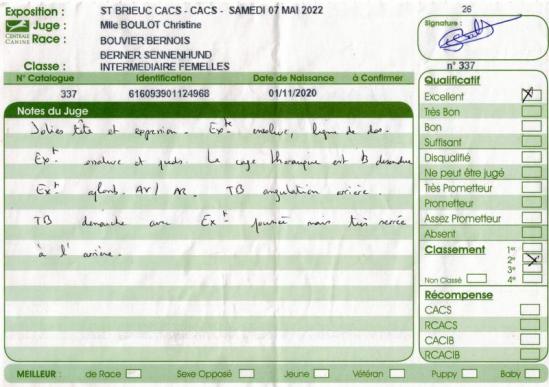 Exposition : ST BRIEUC CACS - CACS - SAMEDI 07 MAI 2022
26
Juge : Mlle BOULOT Christine
Signature :
CENTRALE CANINE
Race : BOUVIER BERNOIS
BERNER SENNENHUND
Classe : INTERMEDIAIRE FEMELLES
n° 337
N° Catalogue Identification Date de Naissance à Confirmer
337 616093901124968 01/11/2020
Notes du Juge
Jolies tête et expression. Ext encolure, ligne de dos.
Ext ossature et pieds. La cage thoracique est B descendue
Ext aplomb. AV/ AR. TB angulation arrière.
TB démarche avec Ext poussée mais très serrée
à l'arrière.
Qualificatif
Excellent
Très Bon
Bon
Suffisant
Disqualifié
Ne peut être jugé
Très Prometteur
Prometteur
Assez Prometteur
Absent
Classement 1er
2e
3e
Non Classé 4e
Récompense
CACS
RCACS
CACIB
RCACIB
MEILLEUR : de Race Sexe Opposé Jeune Vétéran Puppy Baby